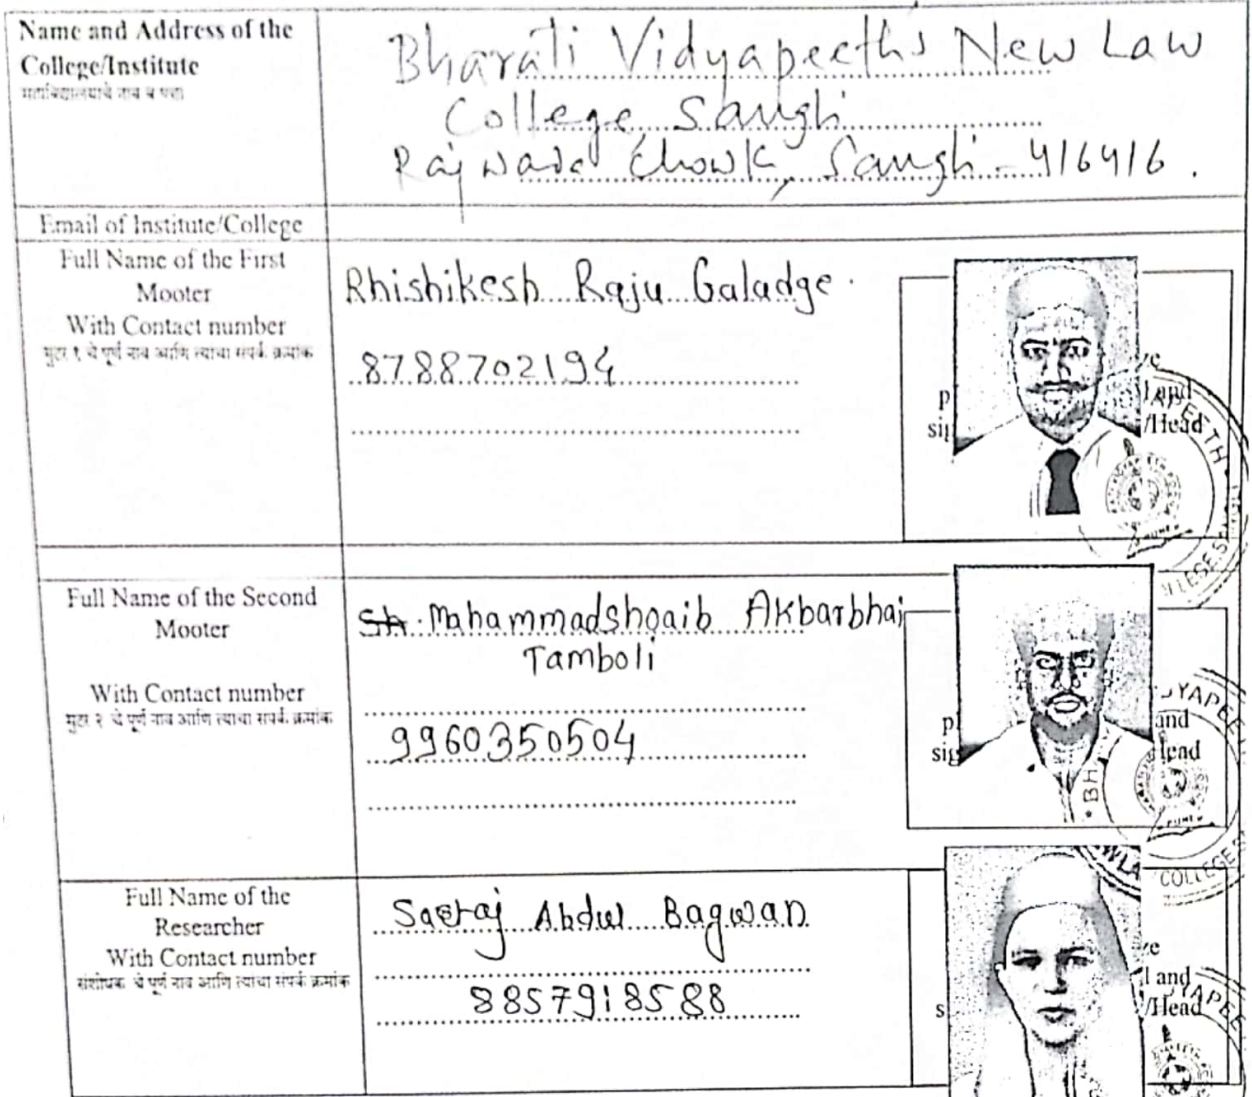 Name and Address of the
College/Institute
महाविद्यालयाचे नाव व पत्ता
Bharati Vidyapeeths New Law
College Sangli
Rajwada Chowk, Sangli - 416416.
Email of Institute/College
Full Name of the First
Mooter
With Contact number
मुटर १ चे पूर्ण नाव आणि त्यांचा संपर्क क्रमांक
Rhishikesh Raju Galadge.
8788702194
and
/Head
Full Name of the Second
Mooter
With Contact number
मुटर २ चे पूर्ण नाव आणि त्यांचा संपर्क क्रमांक
Mahammadshoaib Akbarbhai
Tamboli
9960350504
and
Full Name of the
Researcher
With Contact number
संशोधक चे पूर्ण नाव आणि त्यांचा संपर्क क्रमांक
Sartaj Abdul Bagwan
8857918588
and
/Head